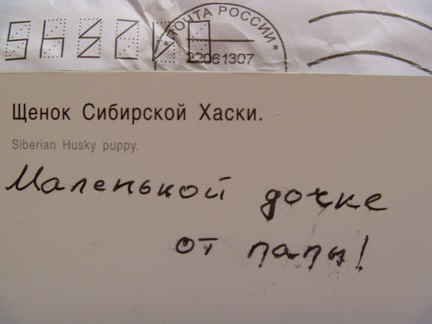 ПОЧТА РОССИИ
22061307
Щенок Сибирской Хаски.
Siberian Husky puppy.
Маленькой дочке
от папы!